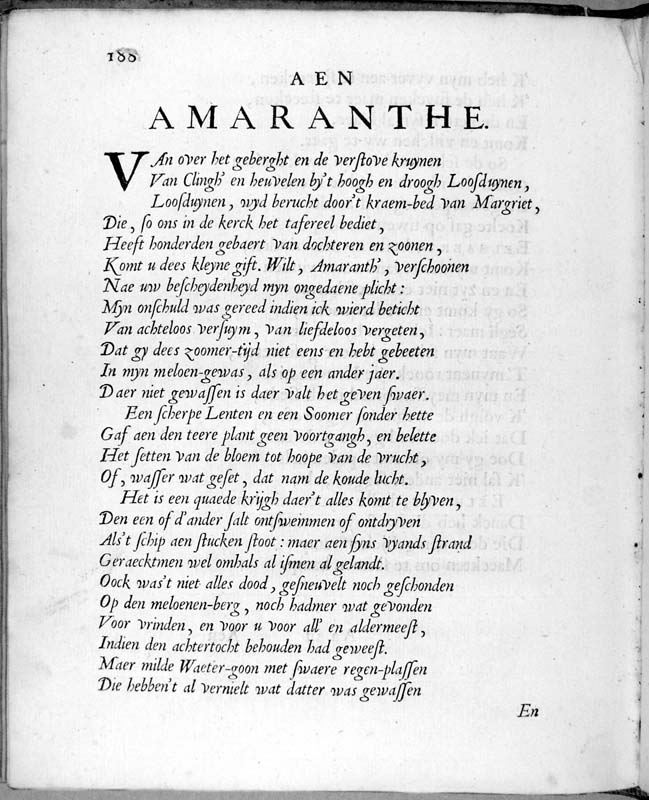 188
AEN
AMARANTHE.
VAn over het geberght en de verſtove kruynen
Van Clingh' en heuvelen by't hoogh en droogh Looſduynen,
Looſduynen, wyd berucht door't kraem-bed van Margriet,
Die, ſo ons in de kerck het tafereel bediet,
Heeft honderden gebaert van dochteren en zoonen,
Komt u dees kleyne gift. Wilt, Amaranth', verſchoonen
Nae uw beſcheydenheyd myn ongedaene plicht:
Myn onſchuld was gereed indien ick wierd beticht
Van achteloos verſuym, van liefdeloos vergeten,
Dat gy dees zoomer-tijd niet eens en hebt gebeeten
In myn meloen-gewas, als op een ander jaer.
Daer niet gewaſſen is daer valt het geven ſwaer.
Een ſcherpe Lenten en een Soomer ſonder hette
Gaf aen den teere plant geen voortgangh, en belette
Het ſetten van de bloem tot hoope van de vrucht,
Of, waſſer wat geſet, dat nam de koude lucht.
Het is een quaede krijgh daer't alles komt te blyven,
Den een of d'ander ſalt ontſwemmen of ontdryven
Als't ſchip aen ſtucken ſtoot: maer aen ſyns vyands ſtrand
Geraecktmen wel omhals al iſmen al gelandt.
Oock was't niet alles dood, geſneuvelt noch geſchonden
Op den meloenen-berg, noch hadmer wat gevonden
Voor vrinden, en voor u voor all' en aldermeeſt,
Indien den achtertocht behouden had geweeſt.
Maer milde Waeter-goon met ſwaere regen-plaſſen
Die hebben't al vernielt wat datter was gewaſſen
En